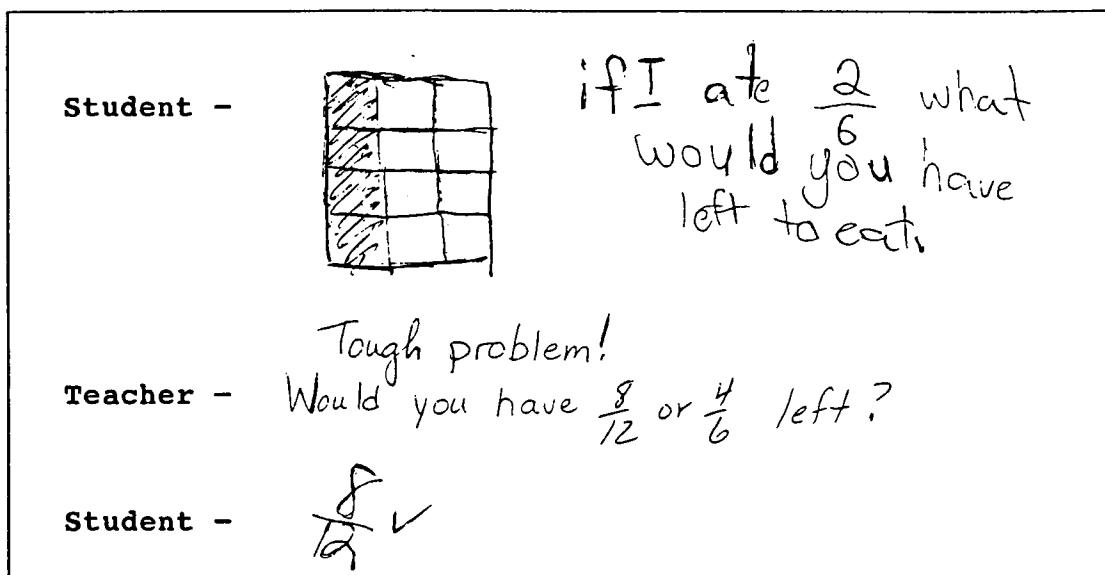 Student -
if I ate 2/6 what
would you have
left to eat.
Tough problem!
Teacher - Would you have 8/12 or 4/6 left?
Student - 8/12 ✓